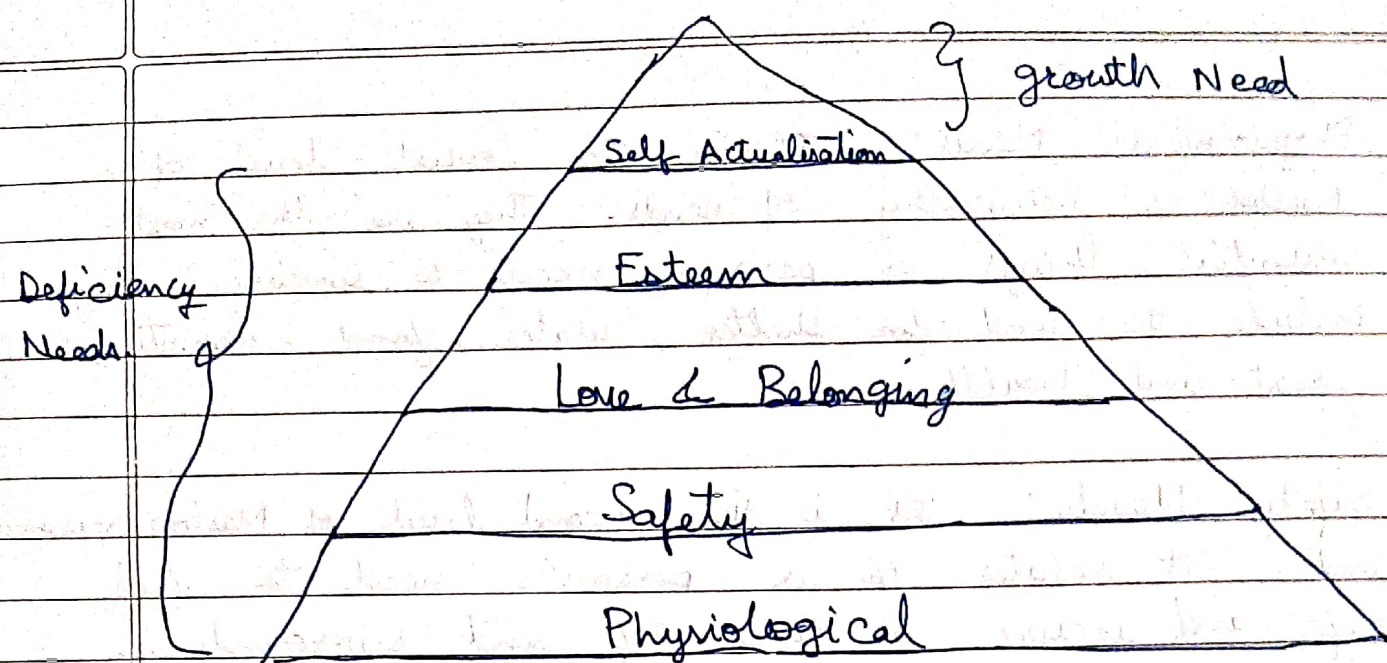 growth Need
Self Actualisation
Deficiency
Needs
Esteem
Love & Belonging
Safety
Physiological